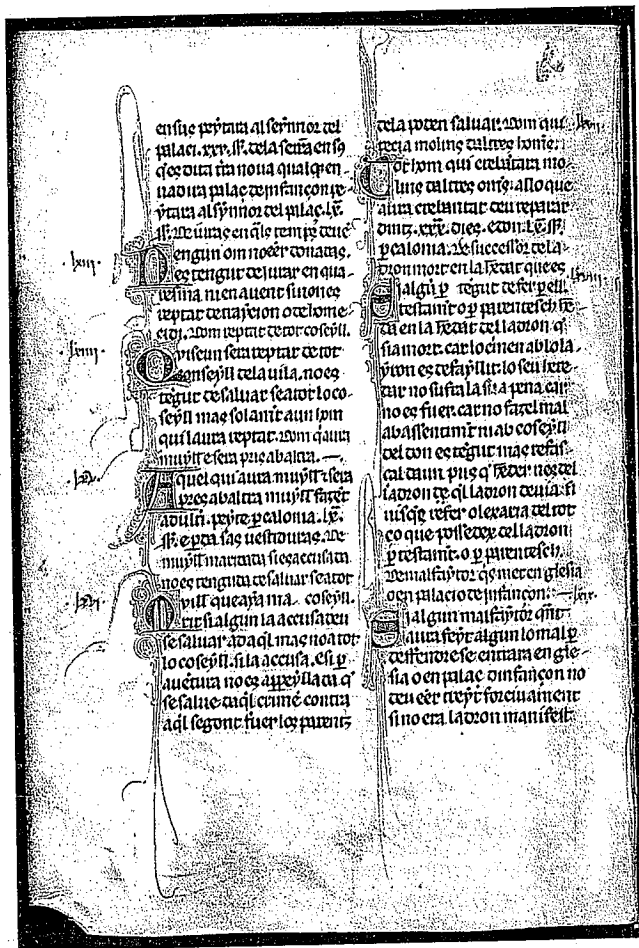 en sue peytara al seynnor del
palaci .xxx. ss. de la seitra en sq
qes duta tra noua qual qe en
uadira palac de infançon pe
ytara al synnor del palac .lx.
ss. De iuras en qls temps deue
.lxiii.
Nengun om no eer donadas.
es tengut de iurar en qua
resma. ni en auent si no es
reptat de traycion o de home
cidi. Dom reptat de tot coseyll.
.lxiiii.
Qui seun sera reptat de tot
conseyll de la uila. no es
tegut de saluar se a tot lo co
seyll mas solamt a un hom
qui laura reptat. Dom q aura
muyll e sera pres ab altra.
.lxv.
Aquel qui aura muyll i sera
pres ab altra muyll fazet
adulti. peyte p calonia .lx.
ss. e perda sas uestiduras. De
muyll maritada si es accusada
no es tenguda de saluar se a tot
coseyll.
.lxvi.
Muyll que aya ma
rit si algun la accusa deu
se saluar ad aql mas no a tot
lo coseyll. si la accusa. e si p
auentura no es appeyllada q
se salue daql crimē contra
aql segont fuer los parentz
de la poden saluar. Dom qui
.lxvii.
pecia molins daltres home.
Tot hom qui crebatara mo
lins daltres oms. allo que
aura crebantat deu reparar
dintz .xxx. dies. e don .lx. ss.
p calonia. De successor de la
dron mort en la hedat que es
.lxviii.
Si algu p tegut de fer p ell.
testamt o p parentesch he
da en la hedat del ladron q
sia mort. car lo crimen ab lo la
yron es defayllit. lo seu here
dar no sufra la sua pena car
no es fuer. car no fa zel mal
ab assentimt ni ab coseyll
del don es tegut mas refas
cal daun pus q heder nes del
ladron de ql ladron deuia. fi
uis qe refer o lexaria del tot
ço que possedex del ladron
p testamt. o p parentesch.
De malfaytor qs met en glesia
o en palacio de infançon.
.lxix.
Si algun malfaytor qnt
aura feyt algun lo mal p
deffendre se entrara en gle
sia o en palac dinfançon no
deu eer treyt forciuament
si no era ladron manifest